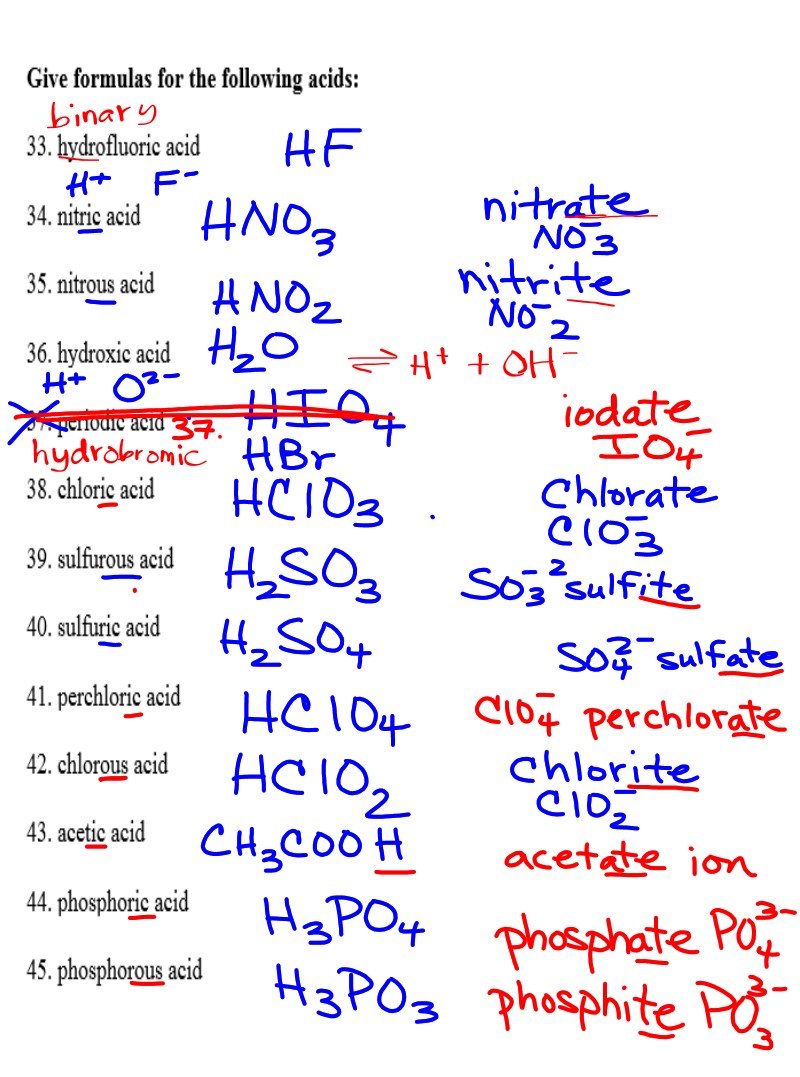 Give formulas for the following acids:
binary
33. hydrofluoric acid HF
H⁺ F⁻
34. nitric acid HNO₃ nitrate
NO₃⁻
35. nitrous acid HNO₂ nitrite
NO₂⁻
36. hydroxic acid H₂O ⇌ H⁺ + OH⁻
H⁺ O²⁻
37. periodic acid HIO₄ iodate
37. hydrobromic HBr IO₄⁻
38. chloric acid HClO₃ Chlorate
ClO₃⁻
39. sulfurous acid H₂SO₃ SO₃⁻² sulfite
40. sulfuric acid H₂SO₄ SO₄²⁻ sulfate
41. perchloric acid HClO₄ ClO₄⁻ perchlorate
42. chlorous acid HClO₂ chlorite
ClO₂⁻
43. acetic acid CH₃COOH acetate ion
44. phosphoric acid H₃PO₄ phosphate PO₄³⁻
45. phosphorous acid H₃PO₃ phosphite PO₃³⁻